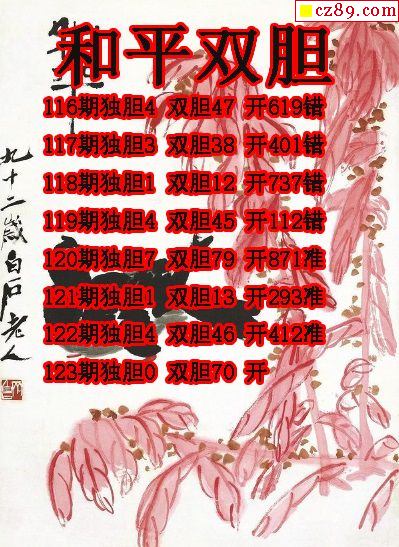 cz89.com
和平双胆
116期独胆4 双胆47 开619错
117期独胆3 双胆38 开401错
118期独胆1 双胆12 开737错
119期独胆4 双胆45 开112错
120期独胆7 双胆79 开871准
121期独胆1 双胆13 开293准
122期独胆4 双胆46 开412准
123期独胆0 双胆70 开
九十二岁白石老人